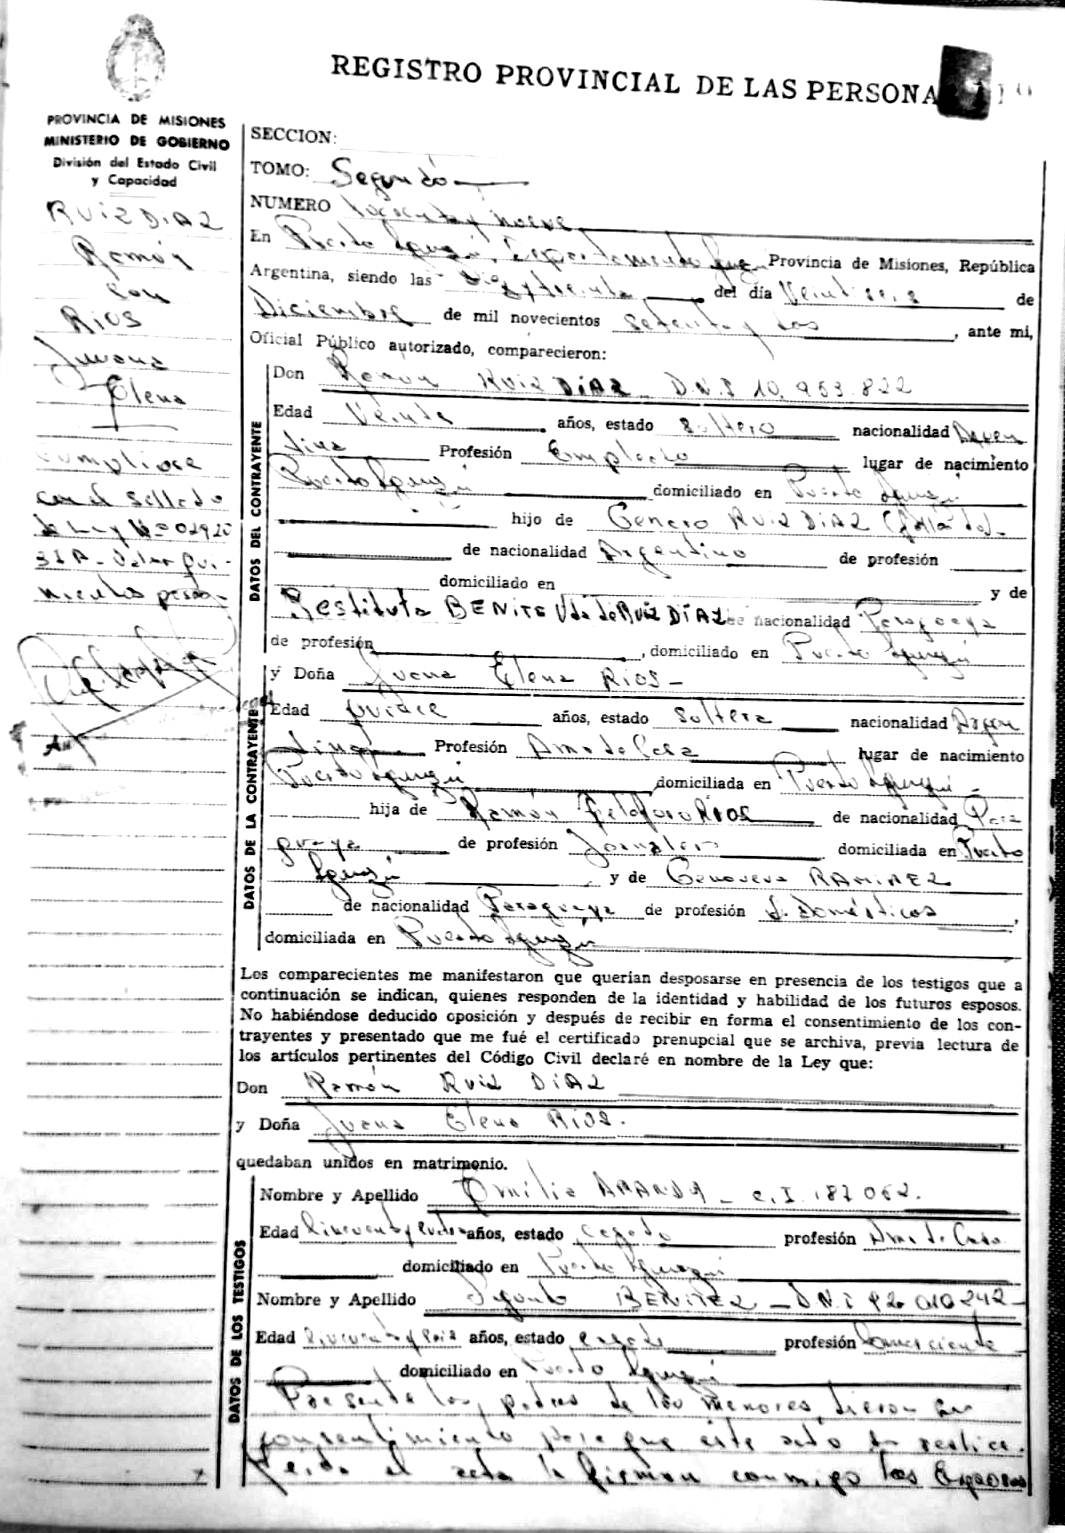 REGISTRO PROVINCIAL DE LAS PERSONA
PROVINCIA DE MISIONES
MINISTERIO DE GOBIERNO
División del Estado Civil
y Capacidad
RUIZ DIAZ
Ramón
con
RIOS
Juana
Elena
Cumpliose
con el sellado
de Ley Nº
SECCION:
TOMO: Segundo
NUMERO nueve
En Puerto Iguazú, Departamento Iguazú Provincia de Misiones, República
Argentina, siendo las del día Veintiseis de
Diciembre de mil novecientos setenta y dos, ante mi,
Oficial Público autorizado, comparecieron:
DATOS DEL CONTRAYENTE
Don Ramón RUIZ DIAZ D.N.I 10.953.822
Edad Veinte años, estado soltero nacionalidad Argen
tina Profesión Empleado lugar de nacimiento
Puerto Iguazú domiciliado en Puerto Iguazú
hijo de Genaro RUIZ DIAZ
de nacionalidad Argentino de profesión
domiciliado en y de
Restituta BENITE Vda de RUIZ DIAZ de nacionalidad Paraguaya
de profesión, domiciliado en Puerto Iguazú
DATOS DE LA CONTRAYENTE
y Doña Juana Elena RIOS -
Edad Quince años, estado soltera nacionalidad Argen
tina Profesión Ama de Casa lugar de nacimiento
Puerto Iguazú domiciliada en Puerto Iguazú -
hija de Ramón RIOS de nacionalidad Para
guaya de profesión Jornalero domiciliada en Puerto
Iguazú y de Genoveva RAMIREZ
de nacionalidad Paraguaya de profesión S. Domésticos,
domiciliada en Puerto Iguazú
Los comparecientes me manifestaron que querían desposarse en presencia de los testigos que a
continuación se indican, quienes responden de la identidad y habilidad de los futuros esposos.
No habiéndose deducido oposición y después de recibir en forma el consentimiento de los con-
trayentes y presentado que me fué el certificado prenupcial que se archiva, previa lectura de
los artículos pertinentes del Código Civil declaré en nombre de la Ley que:
Don Ramón RUIZ DIAZ
y Doña Juana Elena RIOS.
quedaban unidos en matrimonio.
DATOS DE LOS TESTIGOS
Nombre y Apellido Emilia - C.I. 187062.
Edad años, estado casada profesión Ama de Casa
domiciliado en Puerto Iguazú
Nombre y Apellido BENITEZ - DNI 92.010.242 -
Edad años, estado casado profesión Comerciante
domiciliado en Puerto Iguazú
Presente los padres de los menores, dieron su
consentimiento para que este acto se realice.
Leida el acta la firman conmigo los Esposos